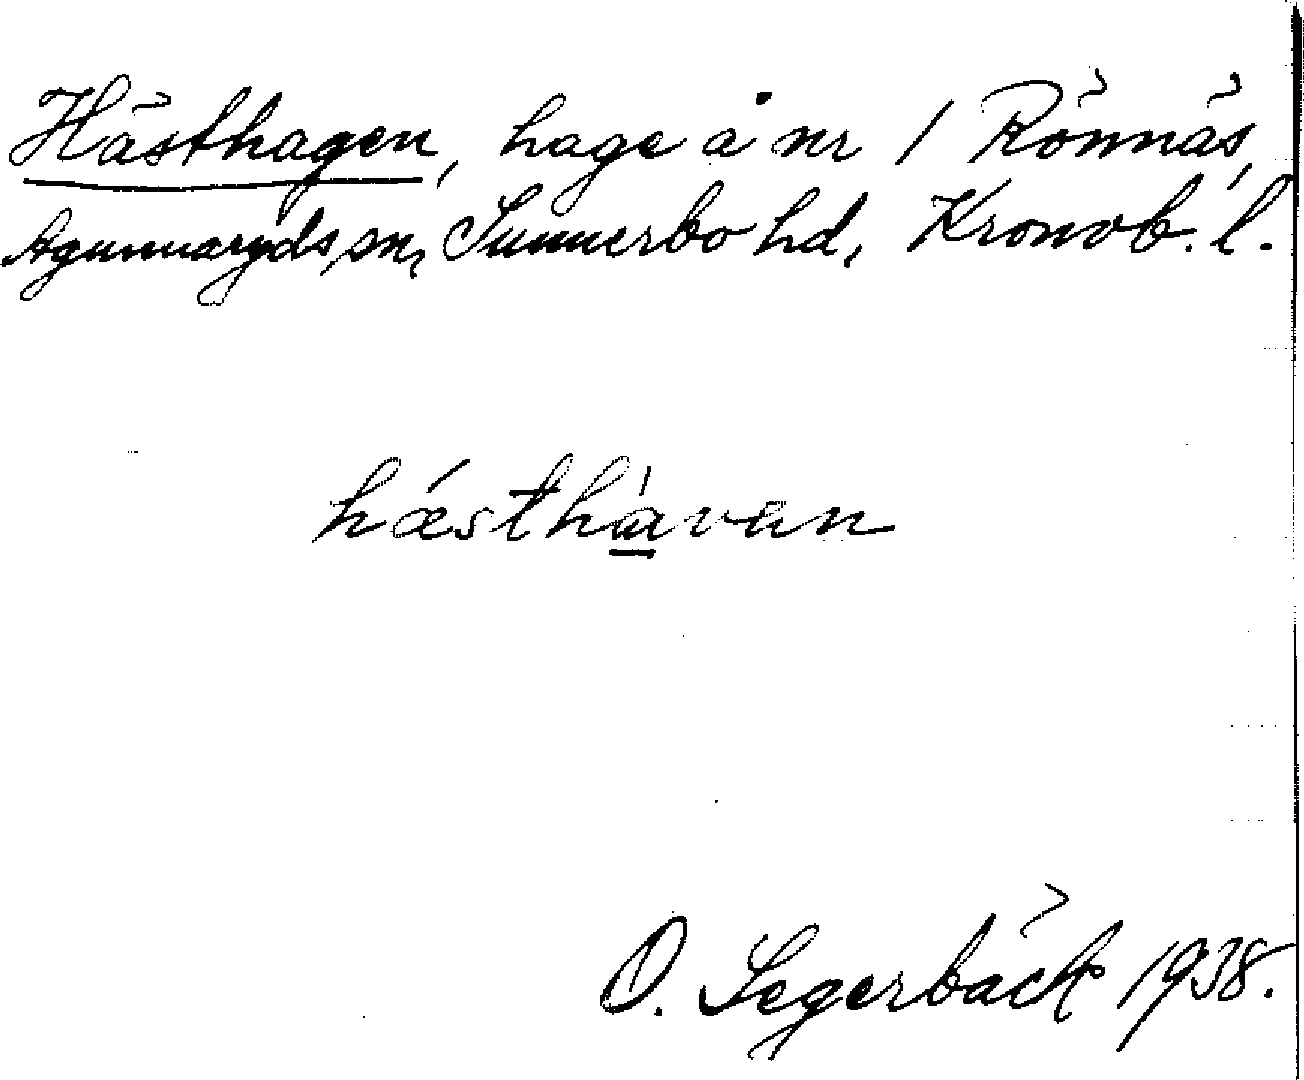 Hästhagen, hage å nr 1 Rönnäs,
Agunnaryds sn, Sunnerbo hd, Kronob. l.
hǽsthàvan
O. Segerbäck 1938.